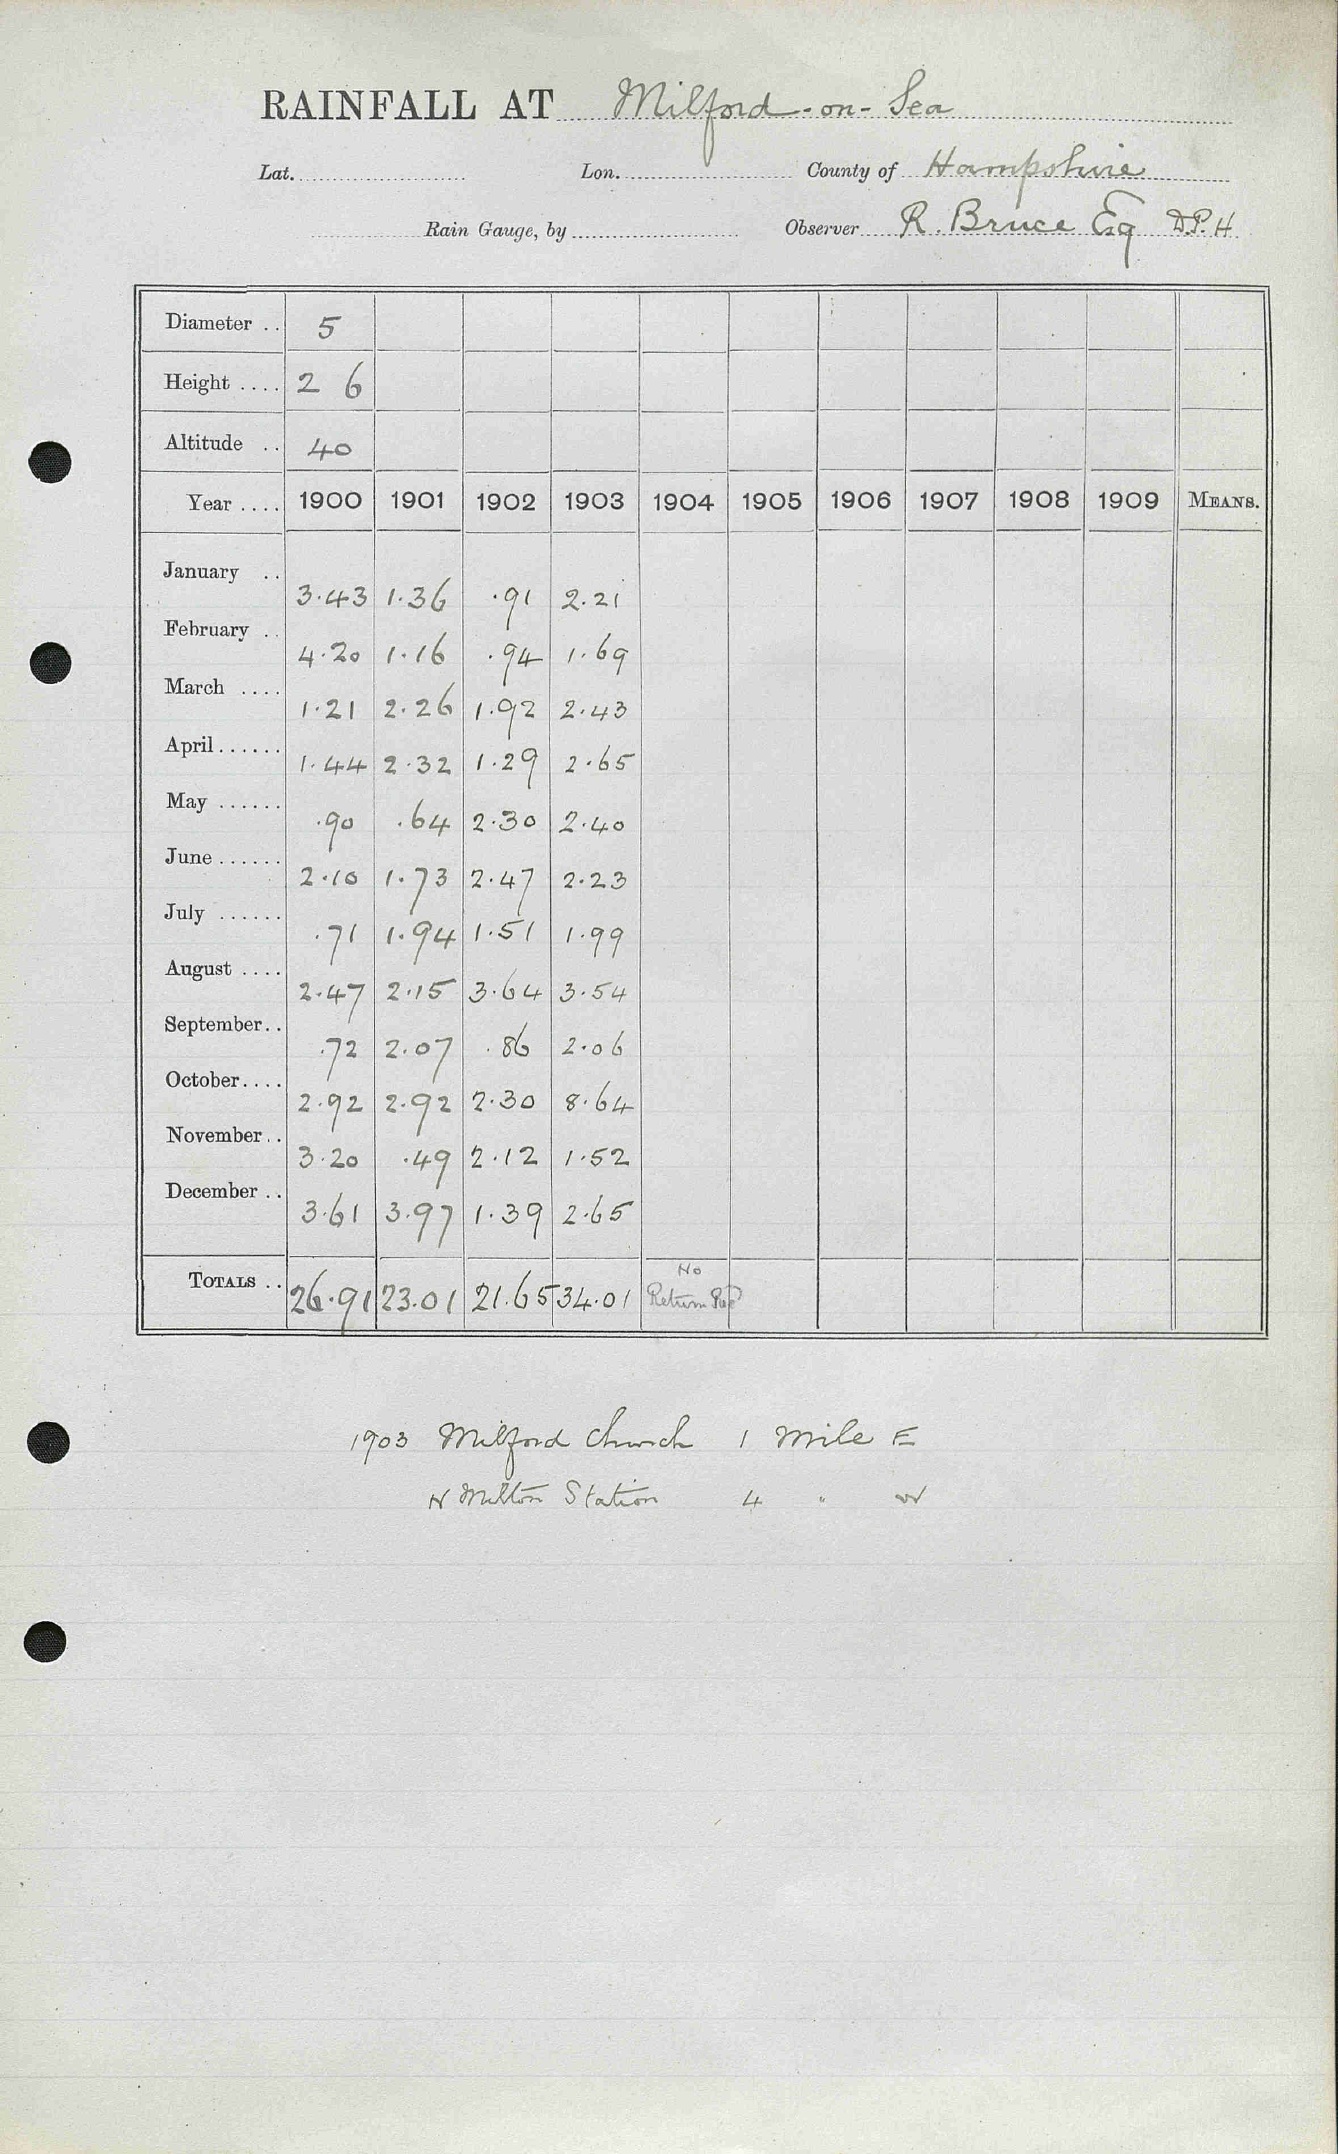 RAINFALL AT Milford-on-Sea
Lat. Lon. County of Hampshire
Rain Gauge, by Observer R. Bruce Esq D.P.H
Diameter .. 5
Height .... 2 6
Altitude .. 40
Year .... 1900 1901 1902 1903 1904 1905 1906 1907 1908 1909 MEANS.
January .. 3.43 1.36 .91 2.21
February .. 4.20 1.16 .94 1.69
March .... 1.21 2.26 1.92 2.43
April ...... 1.44 2.32 1.29 2.65
May ...... .90 .64 2.30 2.40
June ...... 2.10 1.73 2.47 2.23
July ...... .71 1.94 1.51 1.99
August .... 2.47 2.15 3.64 3.54
September.. .72 2.07 .86 2.06
October.... 2.92 2.92 2.30 8.64
November.. 3.20 .49 2.12 1.52
December .. 3.61 3.97 1.39 2.65
TOTALS .. 26.91 23.01 21.65 34.01 No
Return
1903 Milford Church 1 Mile E
N Milton Station 4 " W